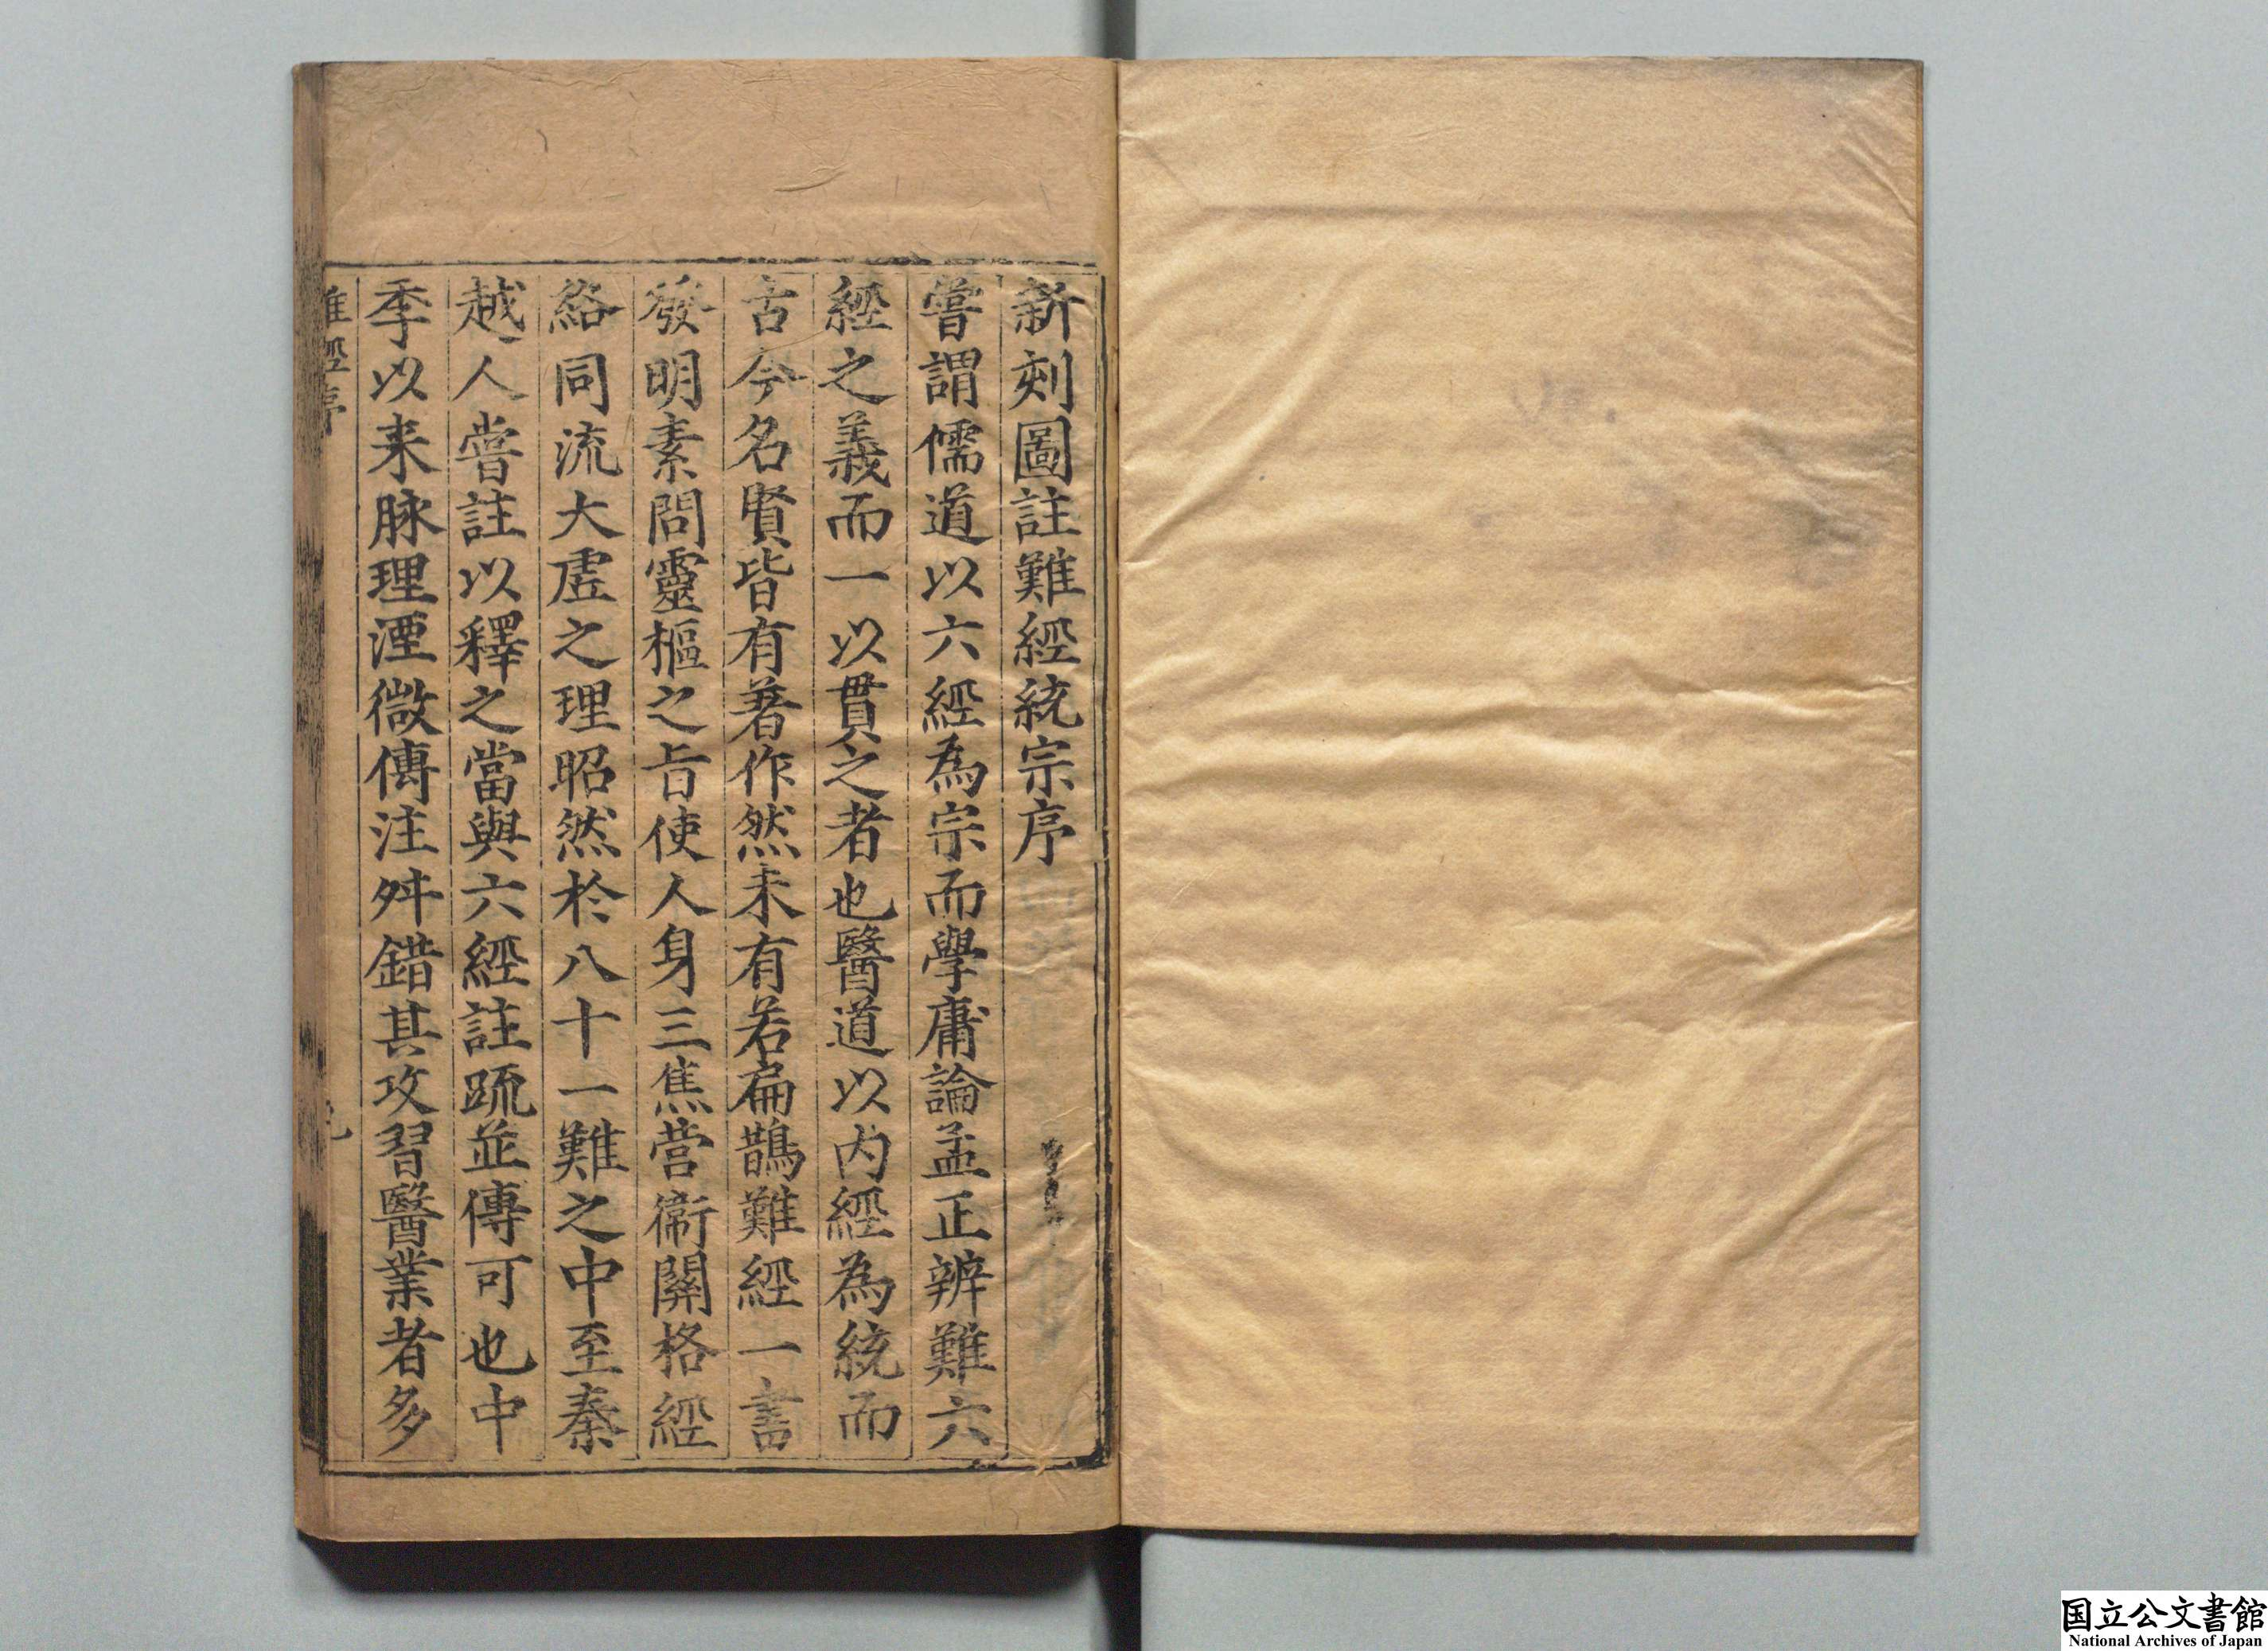 新刻圖註難經統宗序
嘗謂儒道以六經為宗而學庸論孟正辨難六
經之義而一以貫之者也醫道以內經為統而
古今名賢皆有著作然未有若扁鵲難經一書
發明素問靈樞之旨使人身三焦營衛關格經
絡同流大虛之理昭然於八十一難之中至秦
越人嘗註以釋之當與六經註疏並傳可也中
季以来脉理湮微傳注舛錯其攻習醫業者多
難經序
国立公文書館
National Archives of Japan